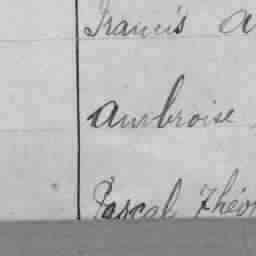 Francis
Ambroise
Pascal